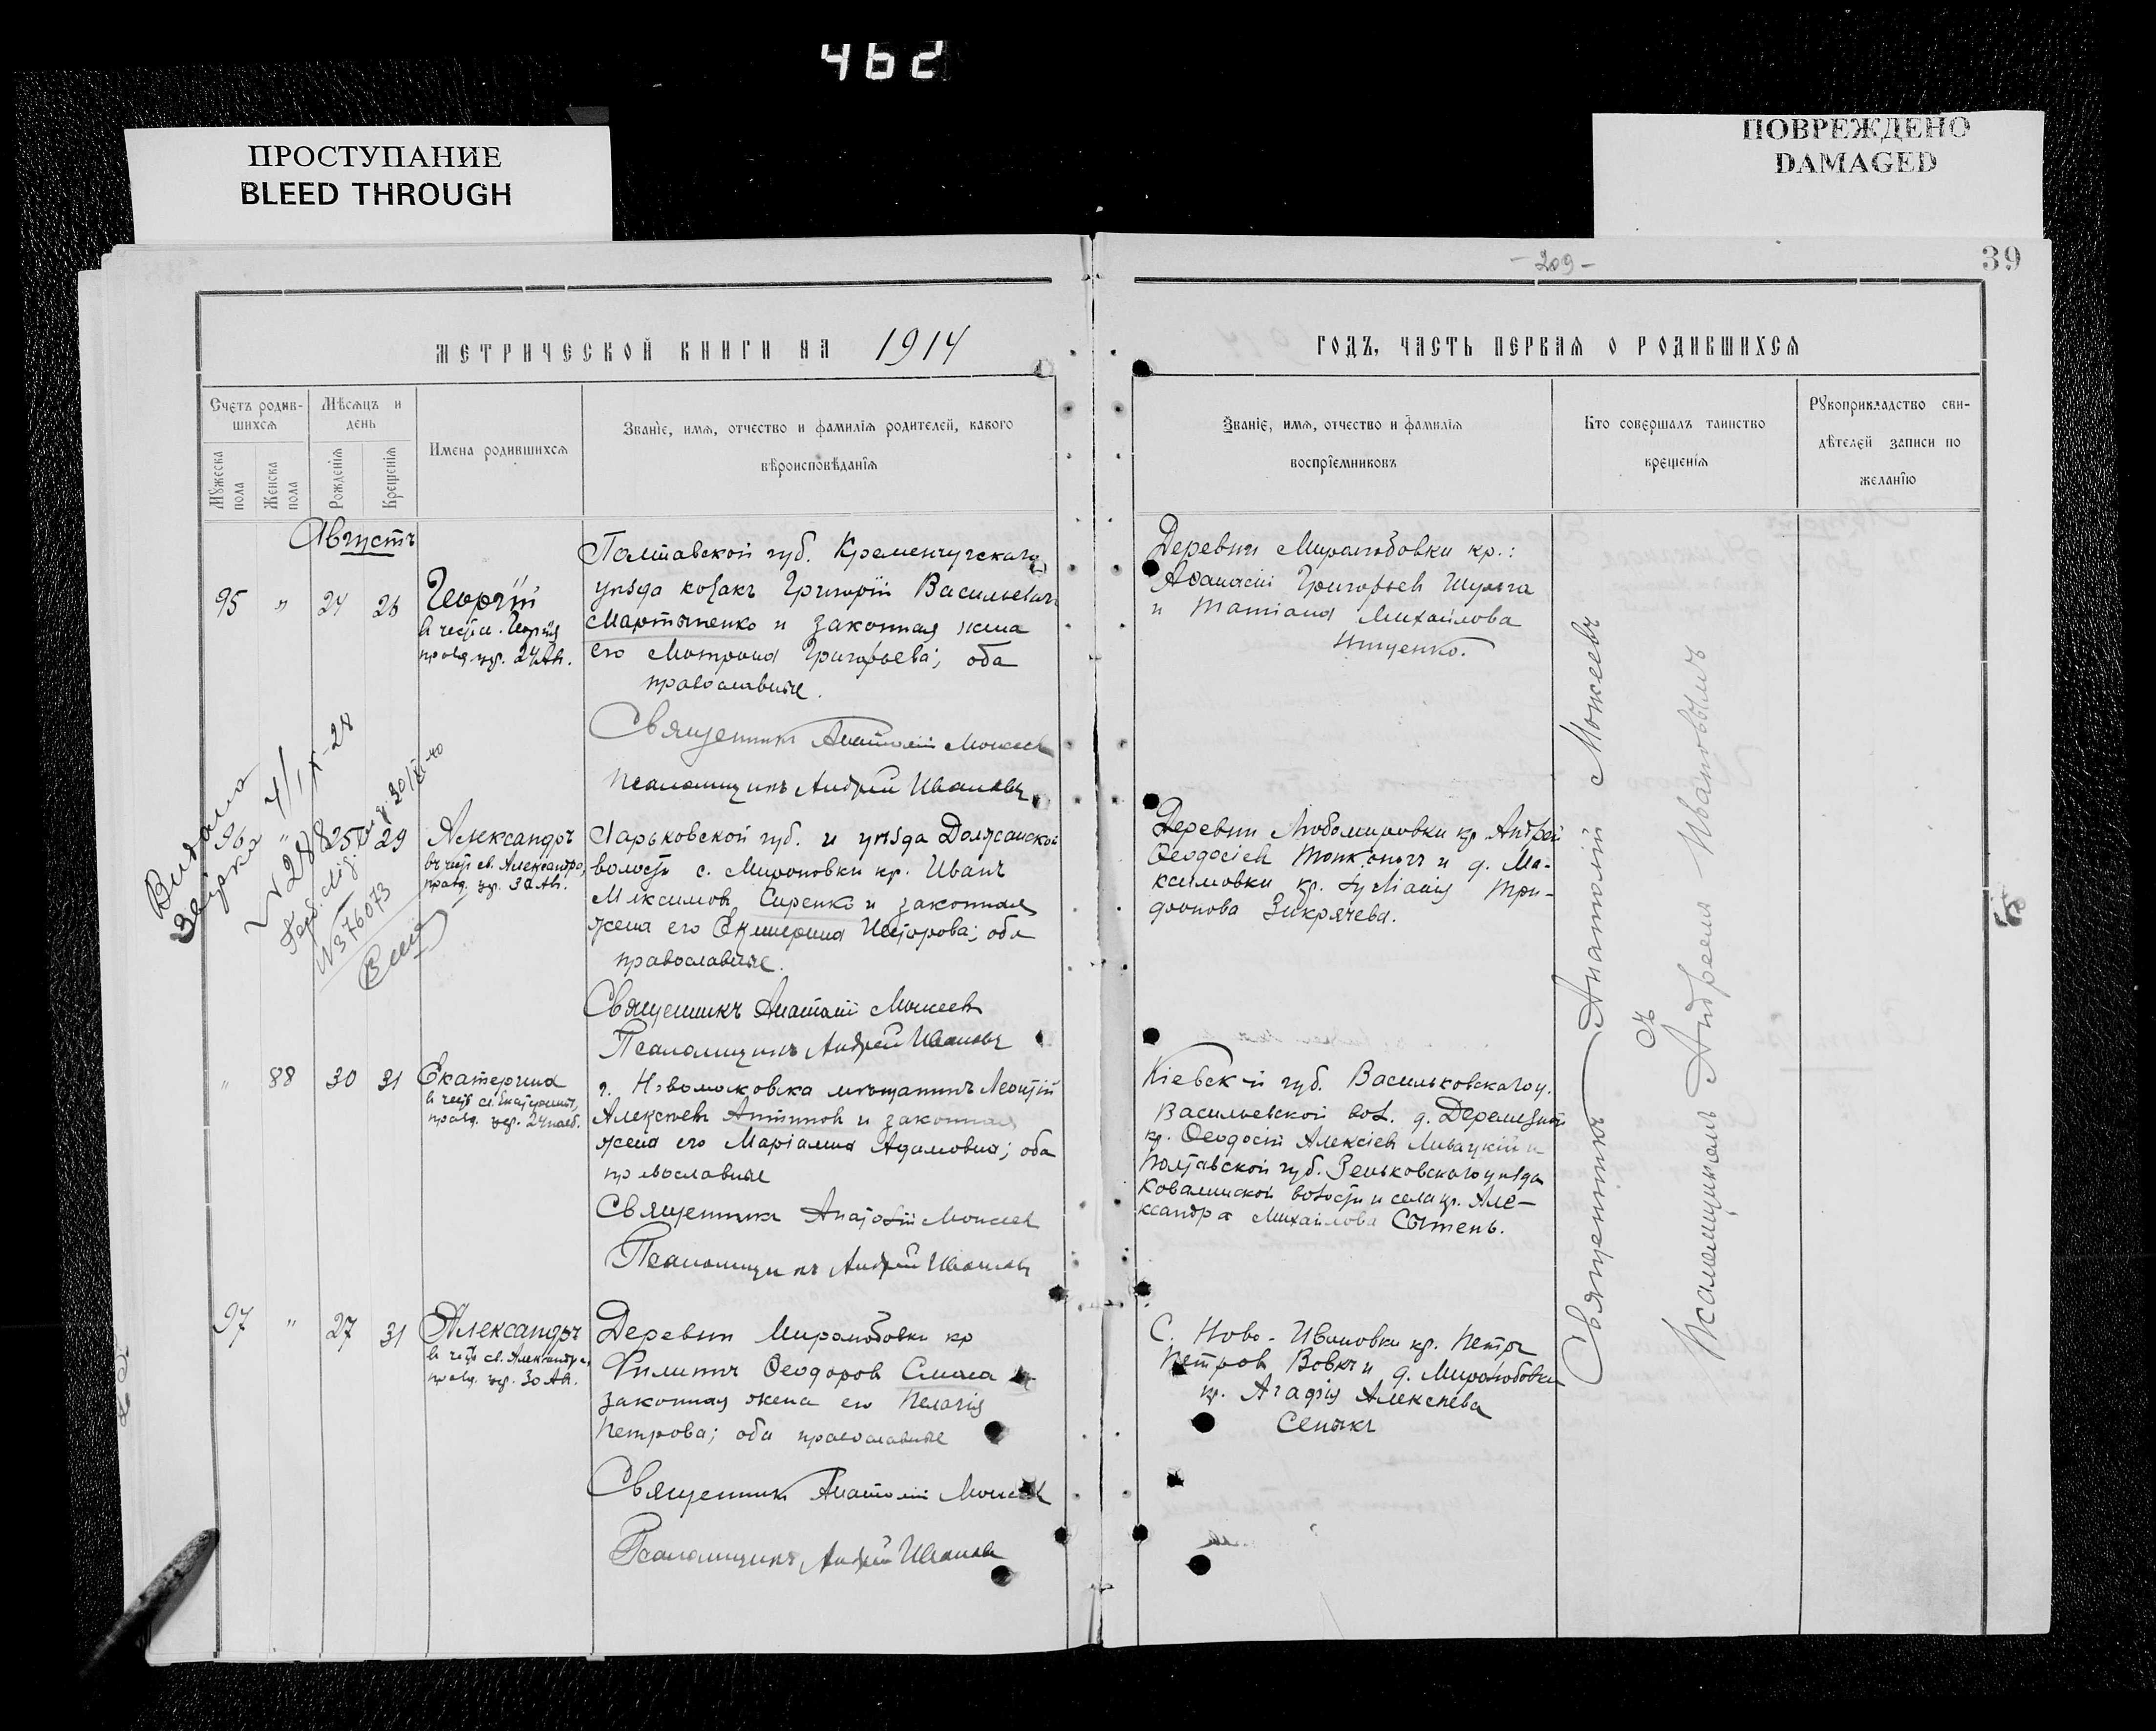 462
ПРОСТУПАНИЕ
BLEED THROUGH
ПОВРЕЖДЕНО
DAMAGED
-209-
39
МЕТРИЧЕСКОЙ КНИГИ НА 1914
ГОДЪ, ЧАСТЬ ПЕРВАЯ О РОДИВШИХСЯ
Счетъ родив-
шихся
Мѣсяцъ и
день
Мужеска
пола
Женска
пола
Рожденія
Крещенія
Имена родившихся
Званіе, имя, отчество и фамилія родителей, какого
вѣроисповѣданія
Званіе, имя, отчество и фамилія
воспріемниковъ
Кто совершалъ таинство
крещенія
Рукоприкладство сви-
дѣтелей записи по
желанію
Августъ
95 " 24 26
Георгій
празд. 24 Ав.
Полтавской губ. Кременчугскаго
уѣзда козакъ Григорій Васильевичъ
Мартыненко и законная жена
его Матрона Григорьева; оба
православные.
Священникъ Анатолій Мокеевъ
Псаломщикъ Андрей Ивановъ
Деревни Миролюбовки кр.:
Аѳанасій Григорьевъ Шульга
и Татіана Михайлова
Видано
4/IX-28
N 288
N 376073
96 " 25 29
Александръ
въ честь св. Александра,
празд. 30 Ав.
Харьковской губ. и уѣзда Должанской
волости с. Мироновки кр. Иванъ
Максимовъ Сиренко и законная
жена его Екатерина Несторова; оба
православные.
Священникъ Анатолій Мокеевъ
Псаломщикъ Андрей Ивановъ
Деревни Любомировки кр. Андрей
Ѳеодосіевъ и д. Ма-
ксимовки кр. Три-
фонова
" 88 30 31
Екатерина
въ честь св. Екатерины,
празд. 24 нояб.
г. Новомосковска мѣщанинъ Леонтій
Алексѣевъ Антиповъ и законная
жена его Маріамна Адамовна; оба
православные
Священникъ Анатолій Мокеевъ
Псаломщикъ Андрей Ивановъ
Кіевской губ. Васильковскаго у.
Васильевской вол. д.
кр. Ѳеодосій Алексіевъ и
Полтавской губ. Зеньковскаго уѣзда
Ковалинской волости и села кр. Але-
ксандра Михайлова Сытень.
97 " 27 31
Александръ
въ честь св. Александра,
празд. 30 Ав.
Деревни Миролюбовки кр
Филиппъ Ѳеодоровъ Смага и
законная жена его Пелагія
Петрова; оба православные
Священникъ Анатолій Мокеевъ
Псаломщикъ Андрей Ивановъ
С. Ново-Ивановки кр. Петръ
Петровъ Вовкъ и д. Миролюбовки
кр. Агафія Алексѣева
Сенькъ
Священникъ Анатолій Мокеевъ
съ
Псаломщикомъ Андреемъ Ивановымъ